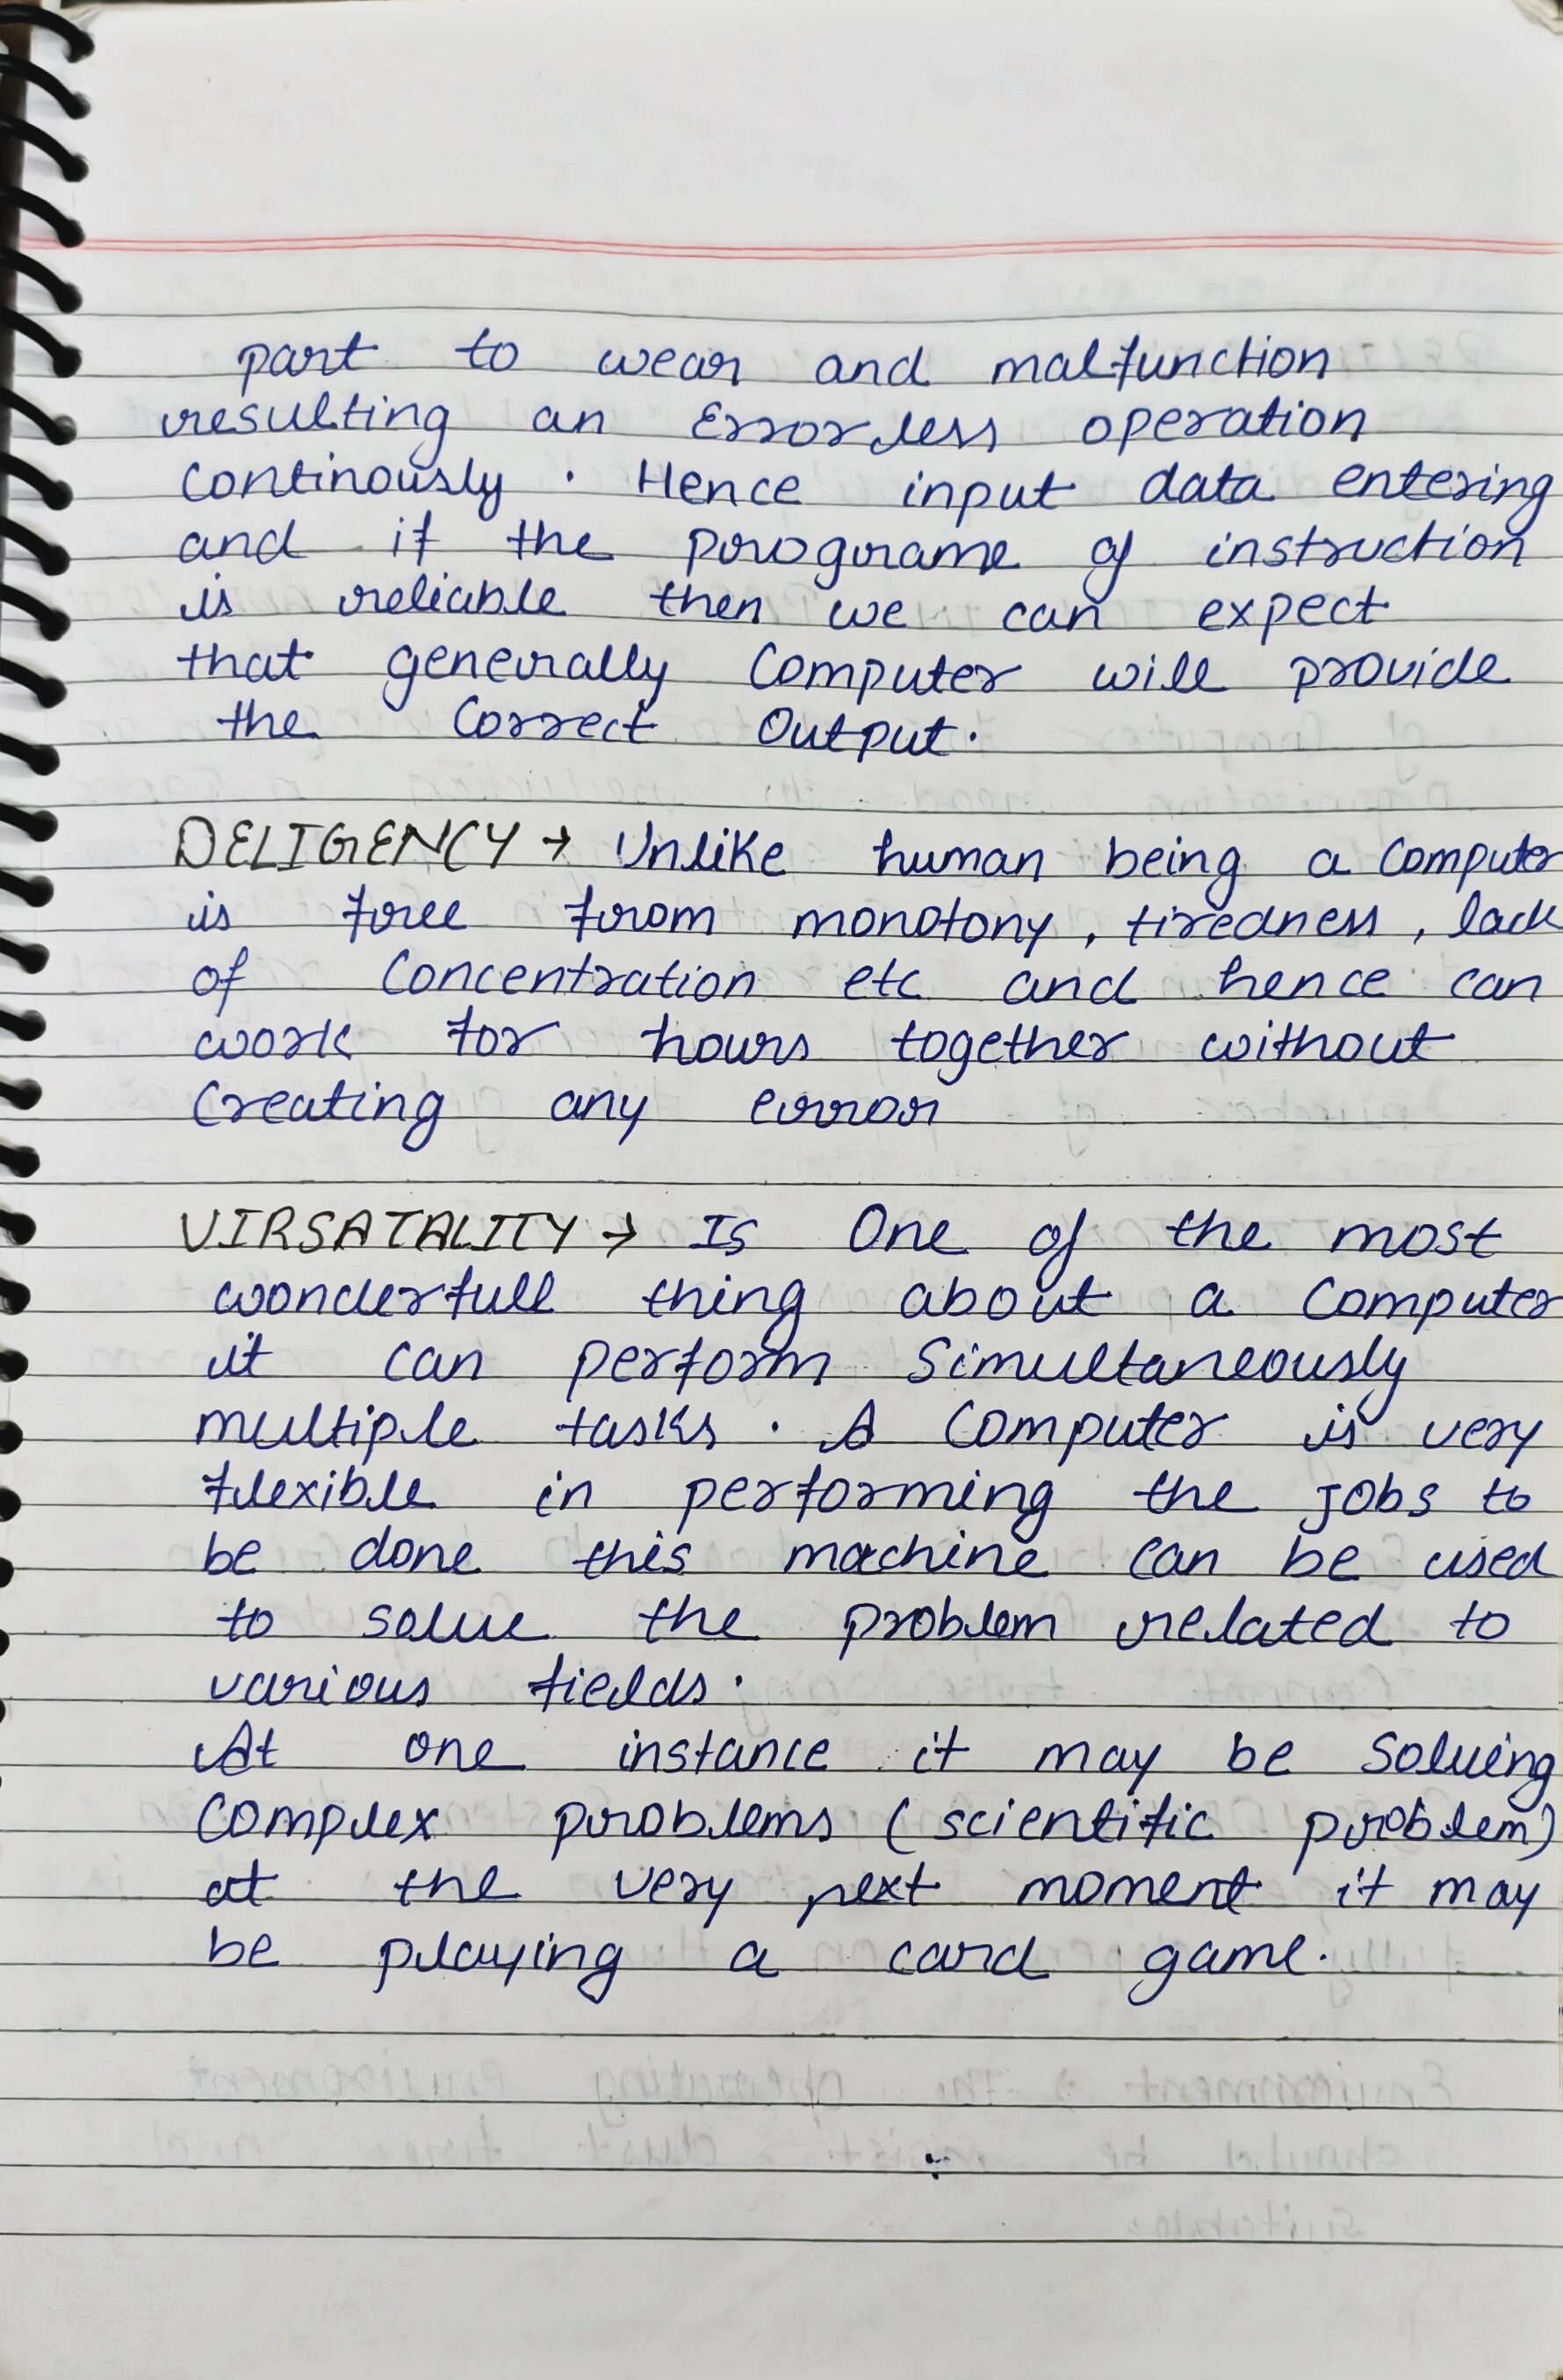 part to wear and malfunction
resulting an Errorless operation
Continously . Hence input data entering
and if the programe of instruction
is reliable then we can expect
that generally Computer will provide
the Correct Output.
DELIGENCY → Unlike human being a Computer
is free from monotony, tiredness, lack
of Concentration etc and hence can
work for hours together without
Creating any error
VIRSATALITY → Is One of the most
wonderfull thing about a Computer
it can perform Simultaneously
multiple tasks . A Computer is very
flexible in performing the jobs to
be done this machine can be used
to solve the problem related to
various fields.
At one instance it may be Solving
Complex problems (scientific problem)
at the very next moment it may
be playing a card game.